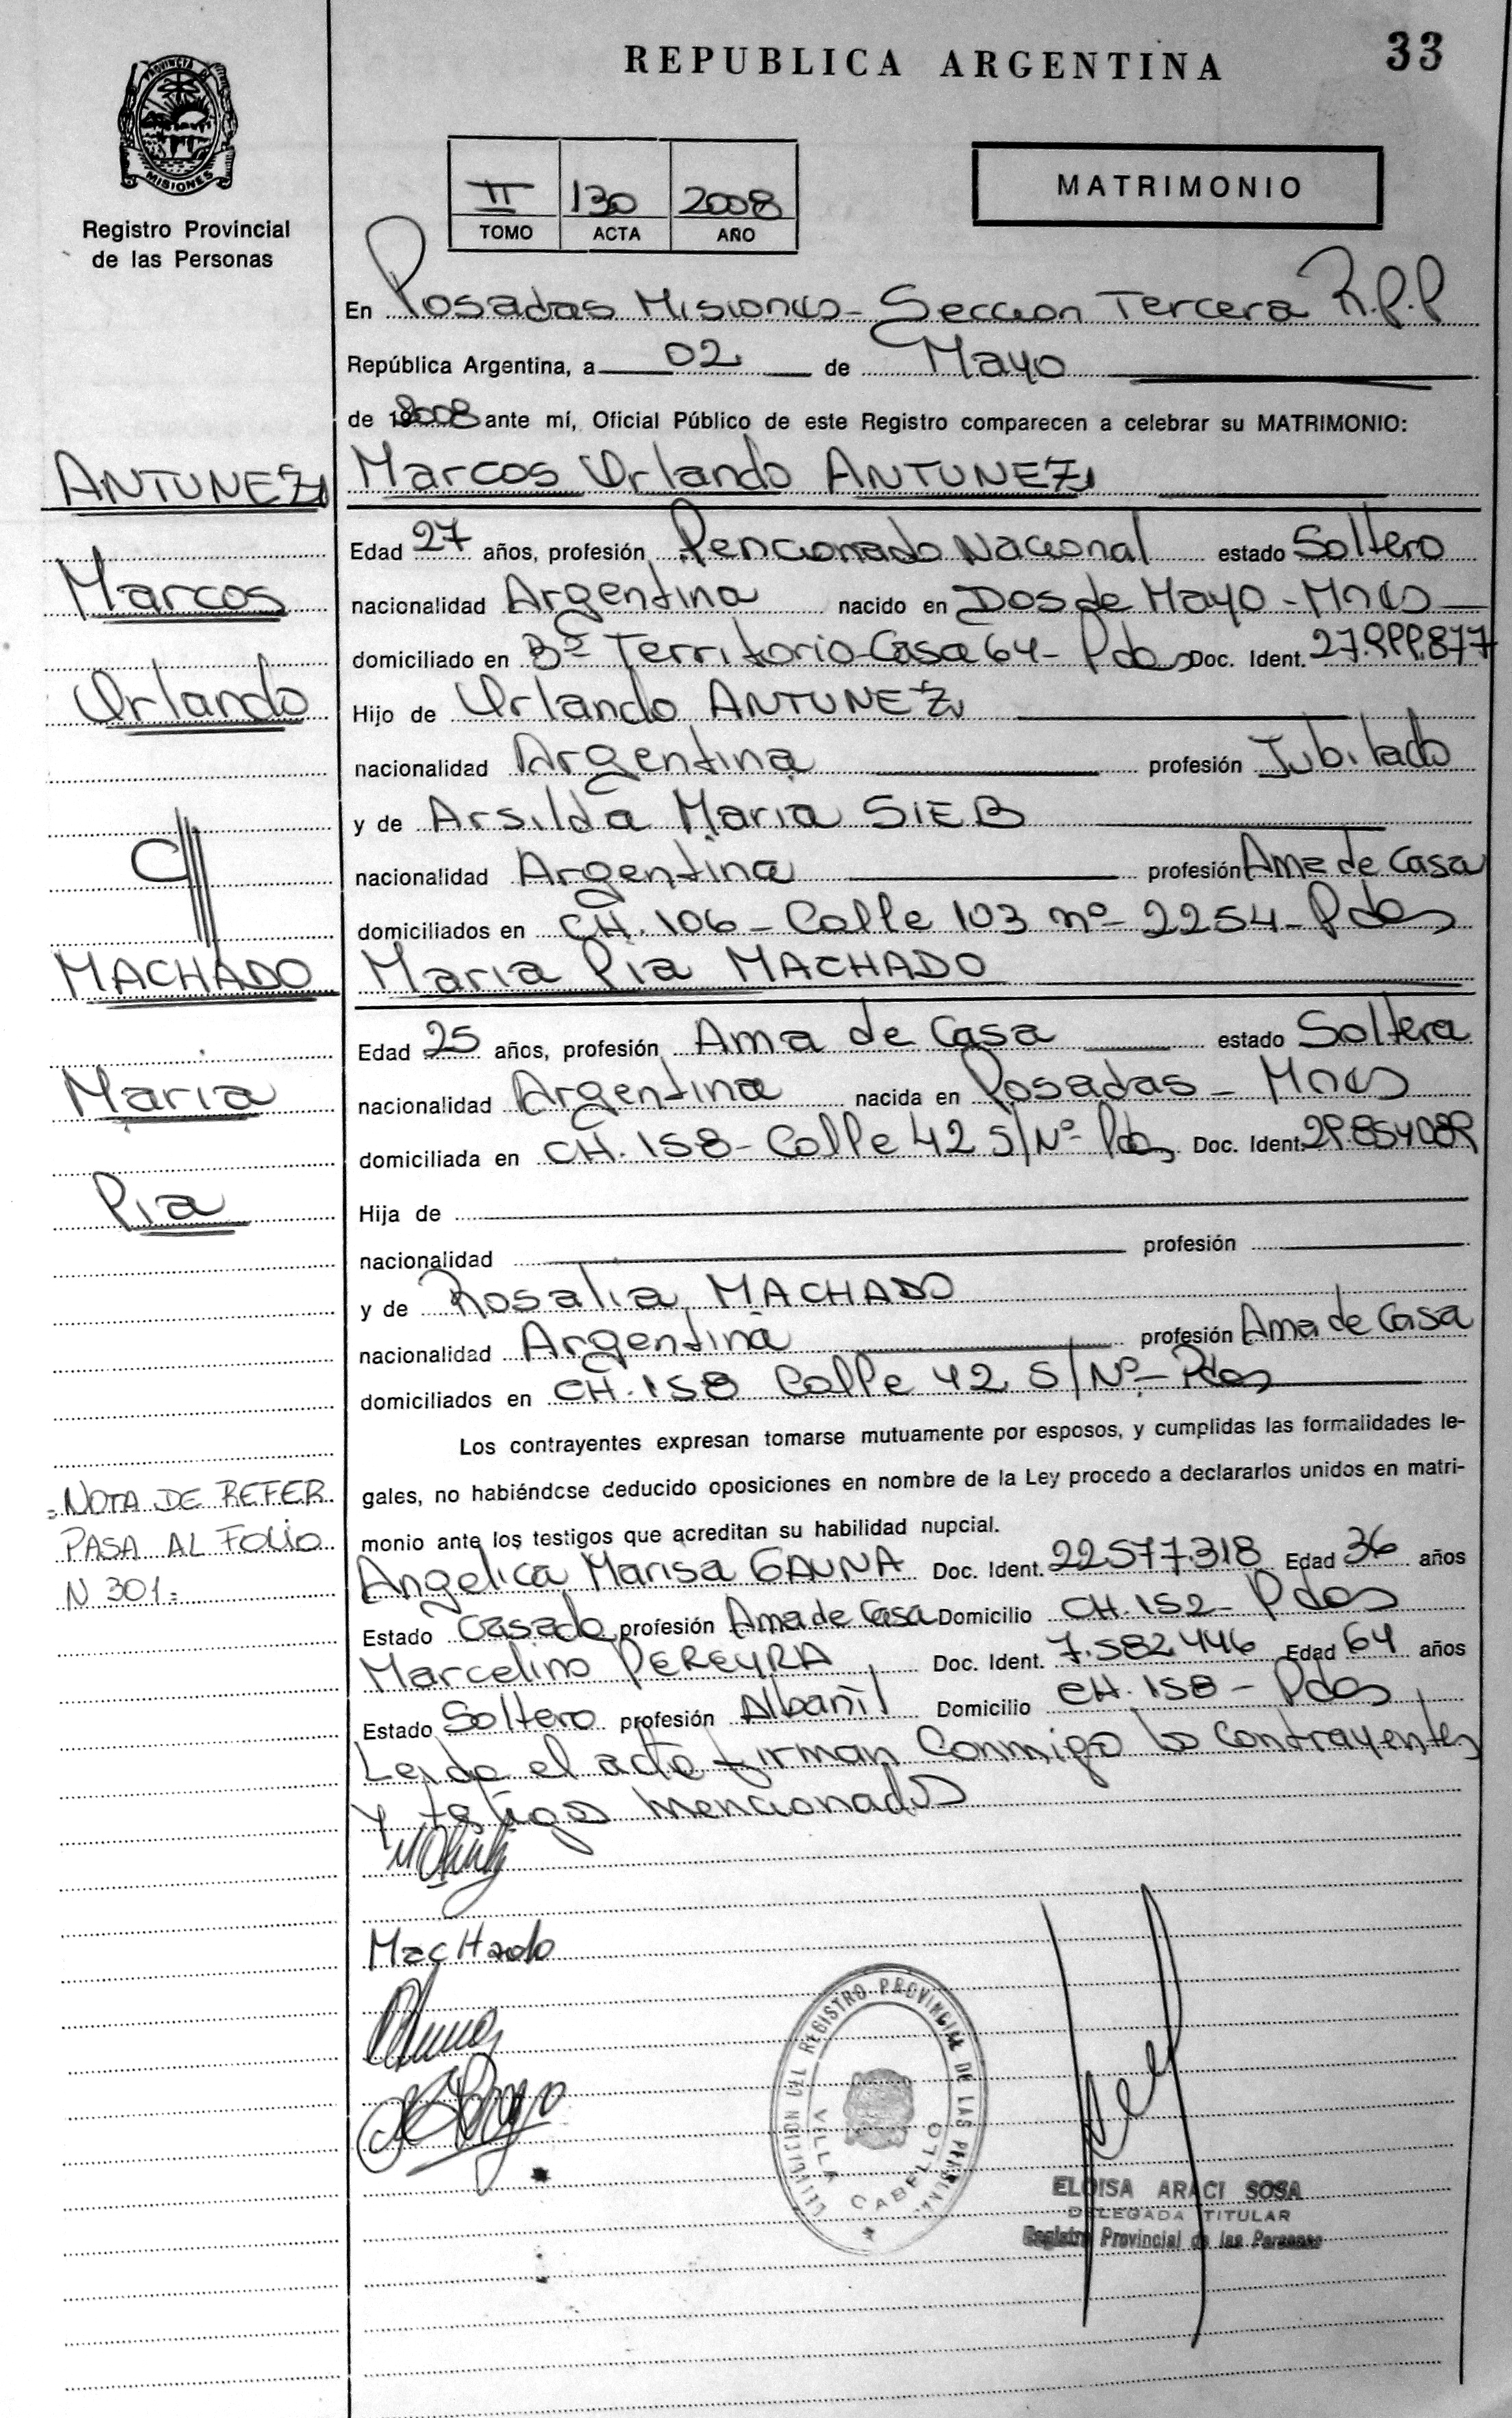 REPUBLICA ARGENTINA 33
PROVINCIA DE
MISIONES
Registro Provincial
de las Personas
II 130 2008
TOMO ACTA AÑO
MATRIMONIO
En Posadas Misiones - Seccion Tercera R.P.P
República Argentina, a 02 de Mayo
de 2008 ante mí, Oficial Público de este Registro comparecen a celebrar su MATRIMONIO:
ANTUNEZ Marcos Orlando ANTUNEZ
Edad 27 años, profesión Pencionado Nacional estado Soltero
Marcos nacionalidad Argentina nacido en Dos de Mayo - Mnes
domiciliado en Bº Territorio Casa 64 - Pdas Doc. Ident. 27.999.877
Orlando Hijo de Orlando ANTUNEZ
nacionalidad Argentina profesión Jubilado
y de Arsilda Maria SIEB
C/ nacionalidad Argentina profesión Ama de Casa
domiciliados en CH. 106 - Calle 103 nº 2254 - Pdas
MACHADO Maria Pia MACHADO
Edad 25 años, profesión Ama de Casa estado Soltera
Maria nacionalidad Argentina nacida en Posadas - Mnes
domiciliada en CH. 158 - Calle 42 S/Nº - Pdas Doc. Ident. 29.854089
Pia Hija de
nacionalidad profesión
y de Rosalia MACHADO
nacionalidad Argentina profesión Ama de Casa
domiciliados en CH. 158 Calle 42 S/Nº - Pdas
Los contrayentes expresan tomarse mutuamente por esposos, y cumplidas las formalidades le-
gales, no habiéndose deducido oposiciones en nombre de la Ley procedo a declararlos unidos en matri-
monio ante los testigos que acreditan su habilidad nupcial.
= NOTA DE REFER.
PASA AL FOLIO
N 301 =
Angelica Marisa GAUNA Doc. Ident. 22577.318 Edad 36 años
Estado Casada profesión Ama de Casa Domicilio CH. 152 - Pdas
Marcelino PEREYRA Doc. Ident. 7.582.446 Edad 64 años
Estado Soltero profesión Albañil Domicilio CH. 158 - Pdas
Leida el acta firman Conmigo los contrayentes
y testigos mencionados
Machado
DELEGACION DEL REGISTRO PROVINCIAL DE LAS PERSONAS
VILLA CABELLO
ELOISA ARACI SOSA
DELEGADA TITULAR
Registro Provincial de las Personas